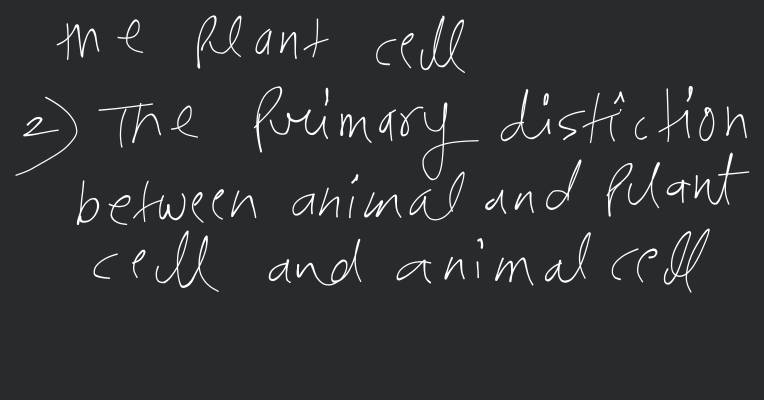 the Plant cell
2) The Primary distiction
between animal and Plant
cell and animal cell